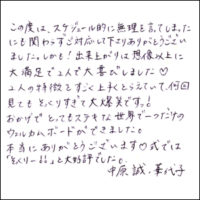 この度は、スケジュール的に無理を言ってしまった
にも関わらずご対応して下さりありがとうござい
ました。しかも！出来上がりは想像以上に
大満足で2人で大喜びしました♡
2人の特徴をすごく上手くとらえていて、何回
見てもそっくりすぎて大爆笑です。!
おかげで とってもステキな世界で一つだけの
ウェルカムボードができました。
本当にありがとうございます♡式では
「そっくり〜!!」と大好評でした。
中原 誠・華代子